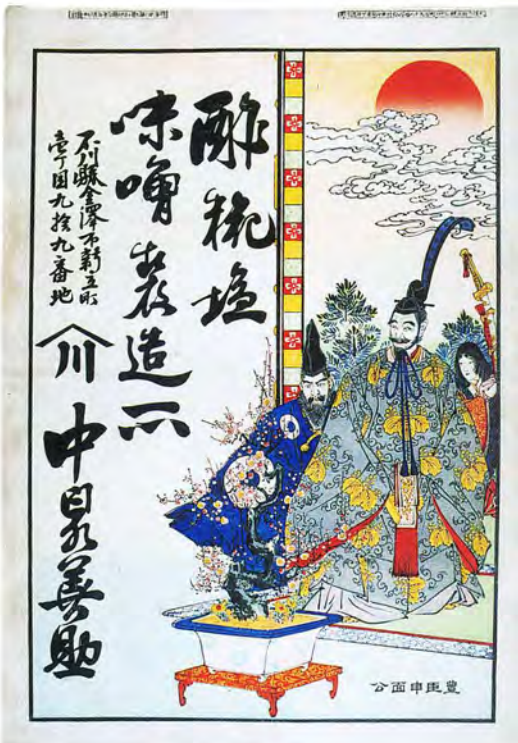 酢糀塩
味噌製造所
石川縣金澤市新立町
壱丁目九拾九番地
川 中泉善助
豊臣申面公